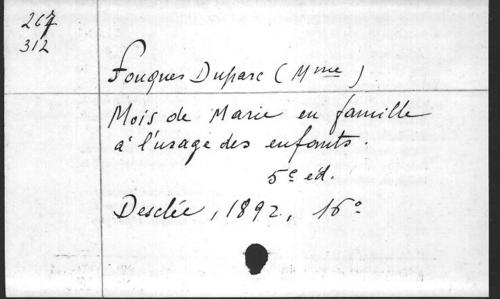 267
312
Fouques Duparc (Mme)
Mois de Marie en famille
à l'usage des enfants.
5e ed.
Desclée, 1892, 16°